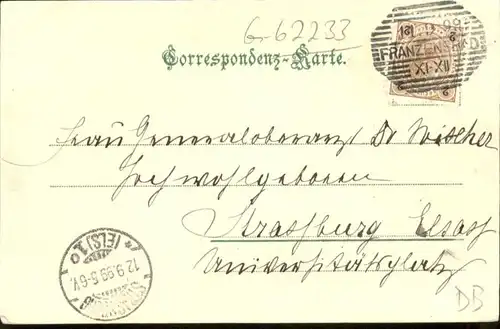 G-62233
Correspondenz-Karte.
FRANZENSBAD
XI-XII
Frau Generaloberarzt Dr Vischer
Hochwohlgeboren
Strassburg Elsass
Universitätsplatz
(ELS) 1
12.9.99.5-6V.
DB